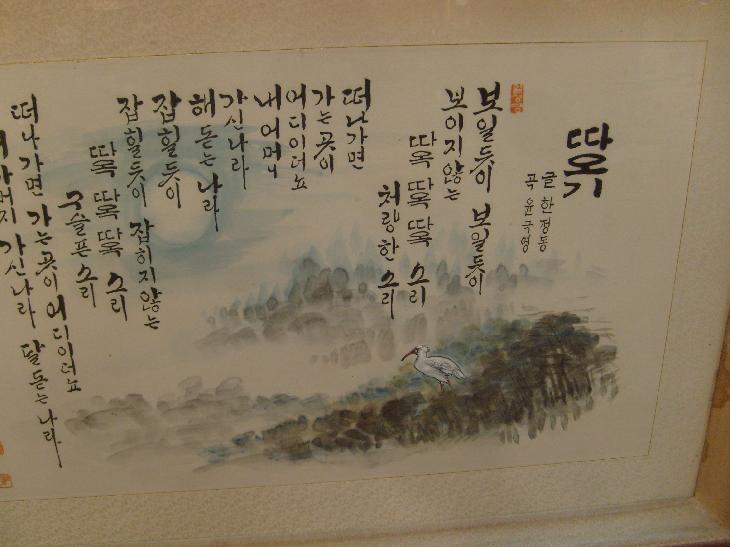 따오기
글 한정동
곡 윤극영
보일듯이 보일듯이
보이지않는
따옥 따옥 따옥 소리
처량한 소리
떠나가면
가는곳이
어디이더뇨
내어머니
가신나라
해돋는 나라
잡힐듯이
잡힐듯이 잡히지않는
따옥 따옥 따옥 소리
구슬픈 소리
떠나가면 가는곳이 어디이더뇨
내어머니 가신나라 달돋는나라